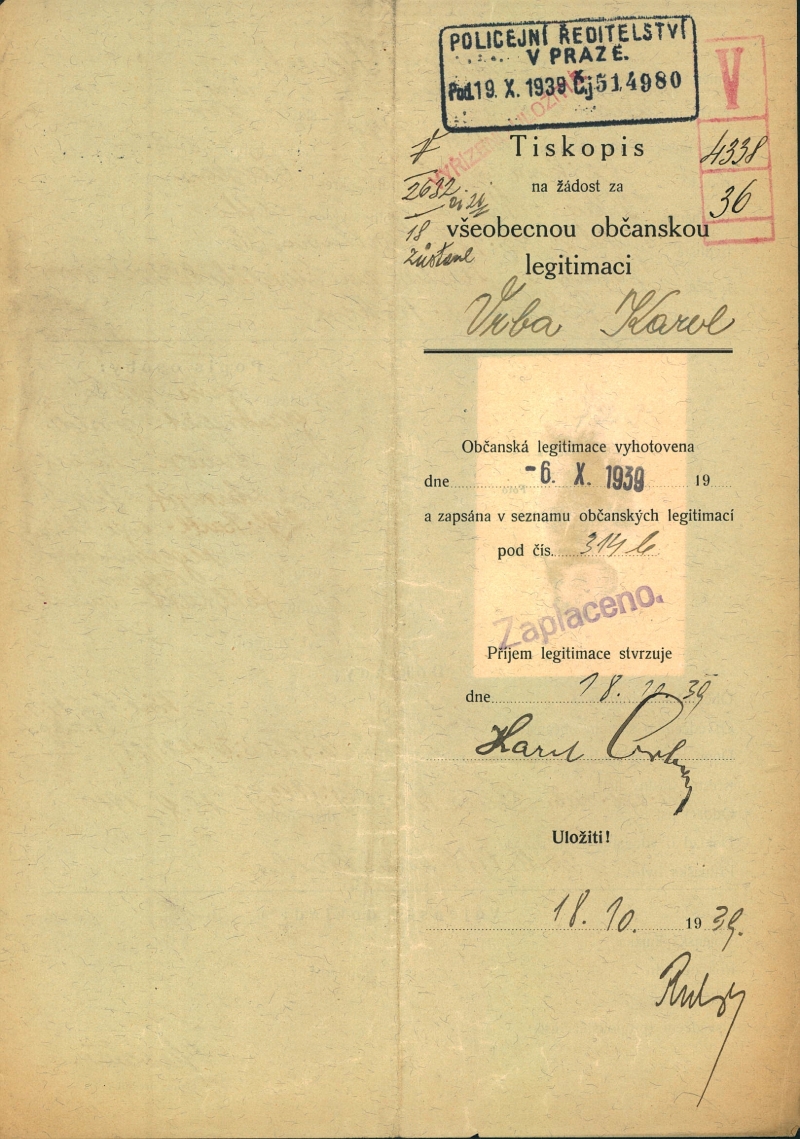 POLICEJNÍ ŘEDITELSTVÍ
V PRAZE.
Pod 19. X. 1939 Čj 514980
V
4338
36
2632
18
zůstane
Tiskopis
na žádost za
všeobecnou občanskou
legitimaci
Vrba Karel
Občanská legitimace vyhotovena
dne -6. X. 1939 19
a zapsána v seznamu občanských legitimací
pod čís. 3146
Zaplaceno.
Příjem legitimace stvrzuje
dne 18. 10. 39
Karel Vrba
Uložiti!
18. 10. 1939.